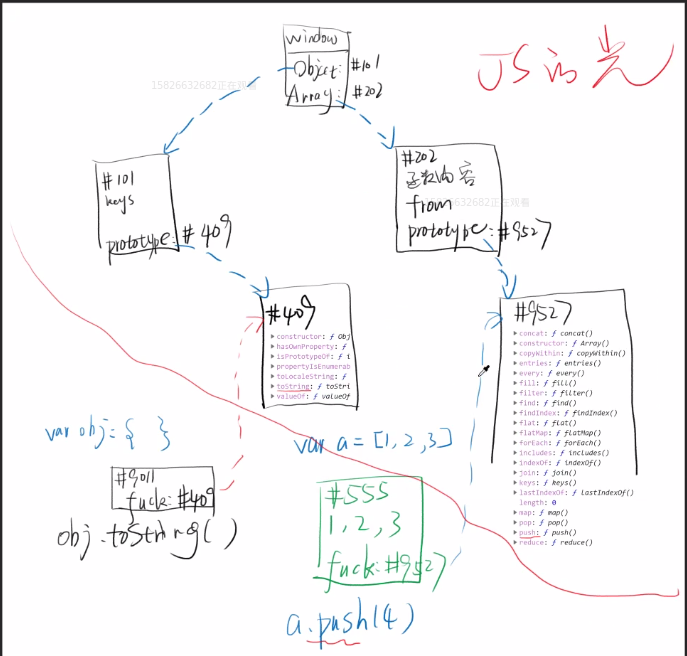 window
Object: #101
Array: #202
JS的光
15826632682正在观看
#101
keys
prototype: #409
#202
函数内容
from
prototype: #9527
#409
constructor: ƒ Obj
hasOwnProperty: ƒ
isPrototypeOf: ƒ i
propertyIsEnumerab
toLocaleString: ƒ
toString: ƒ toStri
valueOf: ƒ valueOf
#9527
concat: ƒ concat()
constructor: ƒ Array()
copyWithin: ƒ copyWithin()
entries: ƒ entries()
every: ƒ every()
fill: ƒ fill()
filter: ƒ filter()
find: ƒ find()
findIndex: ƒ findIndex()
flat: ƒ flat()
flatMap: ƒ flatMap()
forEach: ƒ forEach()
includes: ƒ includes()
indexOf: ƒ indexOf()
join: ƒ join()
keys: ƒ keys()
lastIndexOf: ƒ lastIndexOf()
length: 0
map: ƒ map()
pop: ƒ pop()
push: ƒ push()
reduce: ƒ reduce()
var obj = { }
#9011
fuck: #409
obj.toString()
var a = [1,2,3]
#555
1,2,3
fuck: #9527
a.push(4)